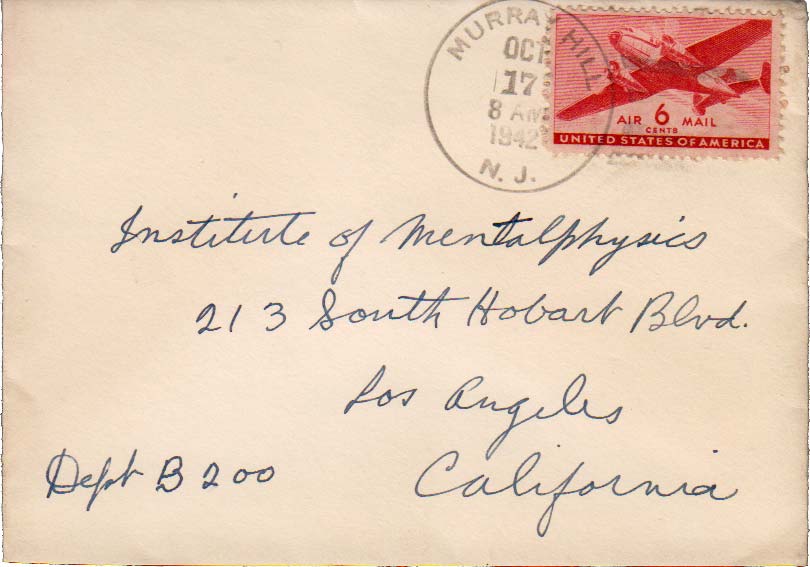 MURRAY HILL
OCT
17
8 AM
1942
N. J.
AIR 6 MAIL
CENTS
UNITED STATES OF AMERICA
Institute of Mentalphysics
213 South Hobart Blvd.
Los Angeles
California
Dept B 200